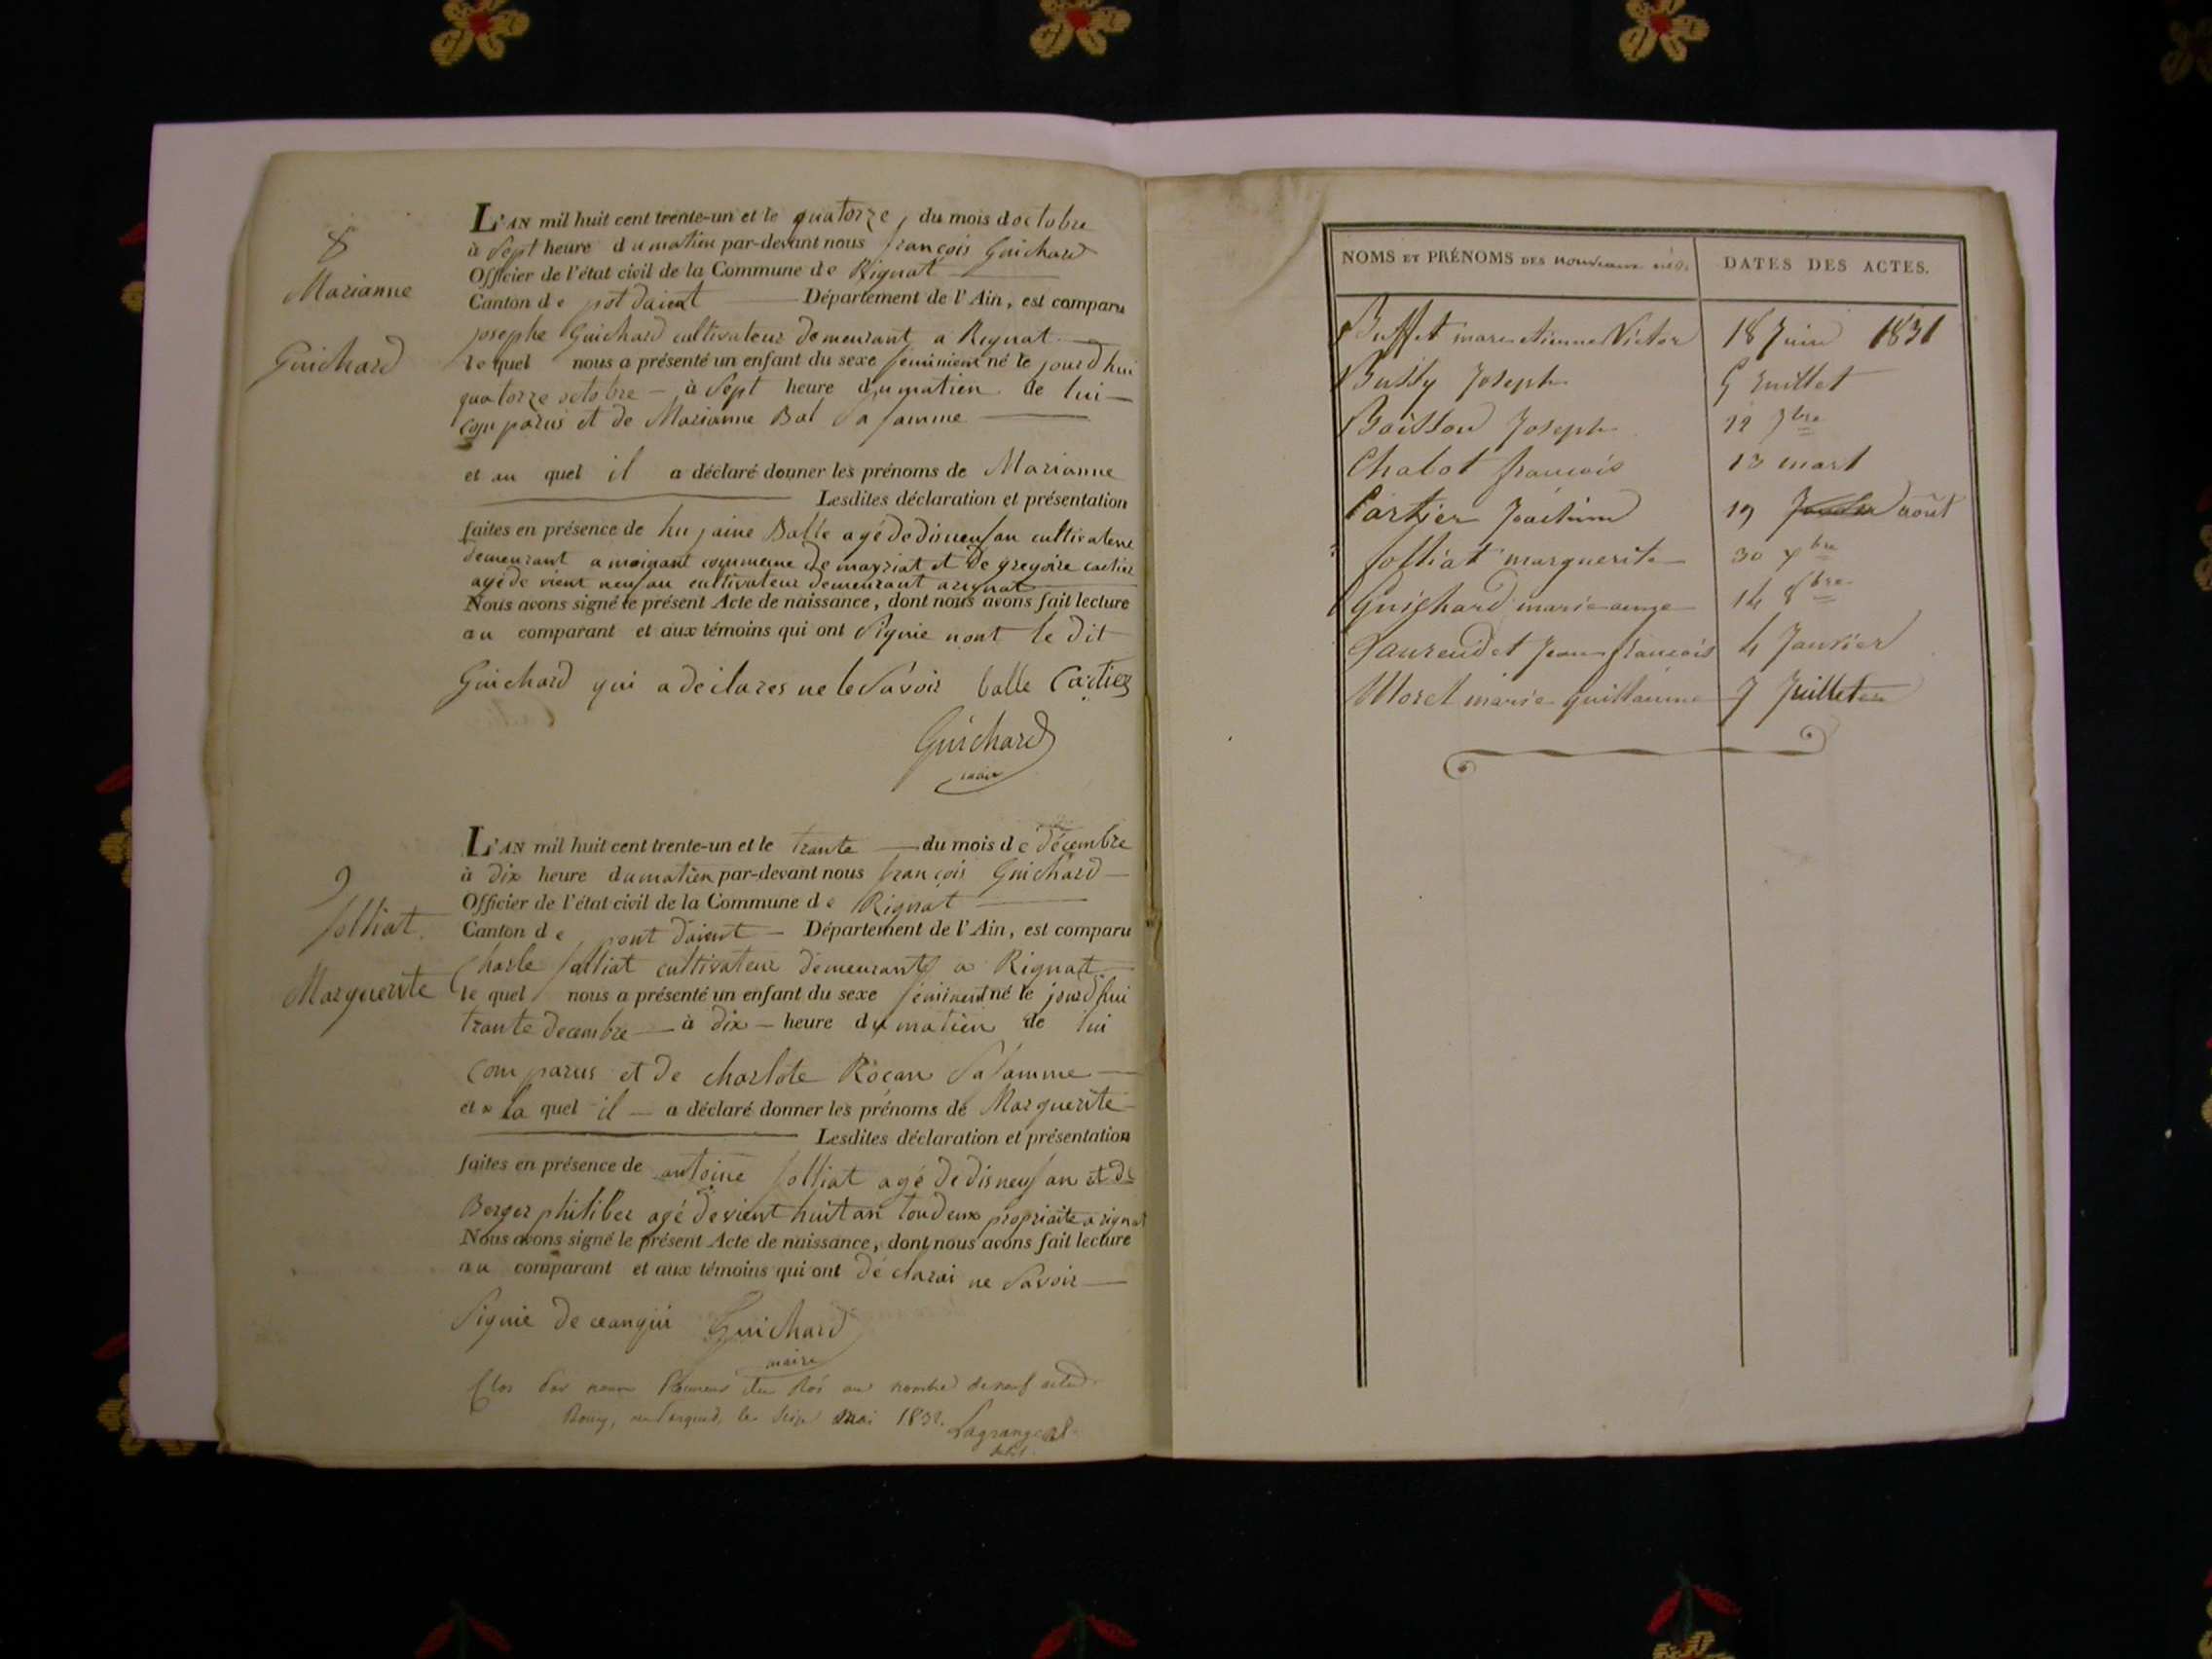 8
Marianne
Guichard
L'AN mil huit cent trente-un et le quatorze, du mois doctobre
à Sept heure du matien par-devant nous françois Guichard
Officier de l'état civil de la Commune de Rignat
Canton de pot daient Département de l'Ain, est comparu
josephe Guichard cultivateur demeurant a Rignat
le quel nous a présenté un enfant du sexe feminient né le jourdhui
quatorze octobre à Sept heure du matien de lui
comparus et de Marianne Bal Sa famme
et au quel il a déclaré donner les prénoms de Marianne
Lesdites déclaration et présentation
faites en présence de Balle agé de disneuf an cultivateur
demeurant a moinant commune de mayriat et de gregoire cartier
agé de vient neuf an cultivateur demeurant arignat
Nous avons signé le présent Acte de naissance, dont nous avons fait lecture
au comparant et aux témoins qui ont Signie nont le dit
Guichard qui a declares ne le Savoir balle Cartier
Guichard
maire
9
folliat
Marguerite
L'AN mil huit cent trente-un et le trante du mois de décembre
à dix heure du matien par-devant nous françois Guichard
Officier de l'état civil de la Commune de Rignat
Canton de pont daient Département de l'Ain, est comparu
Charle folliat cultivateur demeurant a Rignat
le quel nous a présenté un enfant du sexe feminent né le jourdhui
trante decembre à dix heure du matien de lui
comparus et de charlote Rocan Sa famme
et a la quel il a déclaré donner les prénoms de Marguerite
Lesdites déclaration et présentation
faites en présence de antoine folliat agé de disneuf an et de
Berger philiber agé de vient huit an tou deux propriaite a rignat
Nous avons signé le présent Acte de naissance, dont nous avons fait lecture
au comparant et aux témoins qui ont dé clarai ne Savoir
Signie de ceanquir Guichard
maire
Clos par nous Procureur du Roi au nombre de neuf actes
Bourg, le mai 1832. Lagrange
NOMS ET PRÉNOMS DES nouveaux nés. DATES DES ACTES.
Buffet marc etienne Victor 18 Juin 1831
Bussy Joseph 9 Juillet
Boisson Joseph 12 7bre
Chabot françois 13 mars
Cartier Joachim 19 août
folliat marguerite 30 xbre
Guichard marie ange 14 8bre
Laurendet Jean françois 4 Janvier
Morel marie guillaume 7 Juillet